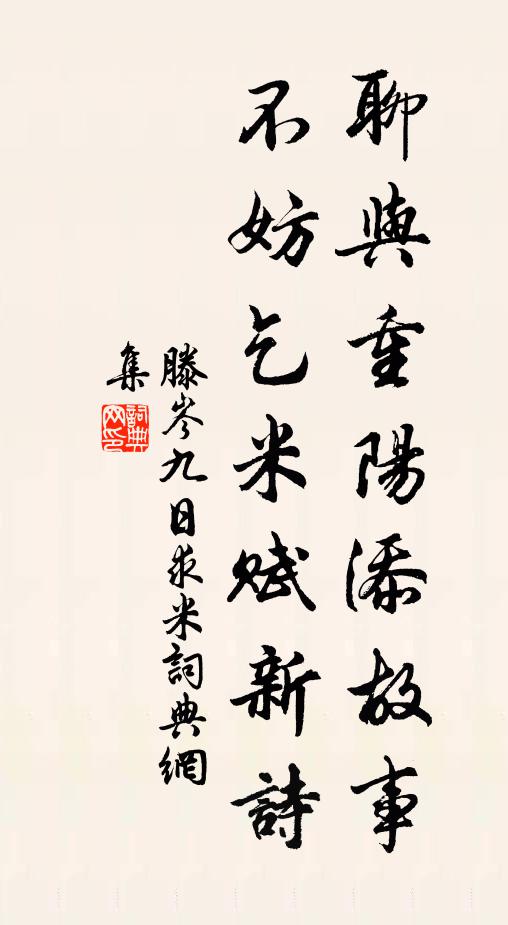 聊與重陽添故事
不妨乞米賦新詩
滕岑九日求米詞典網
集
詞典
网印